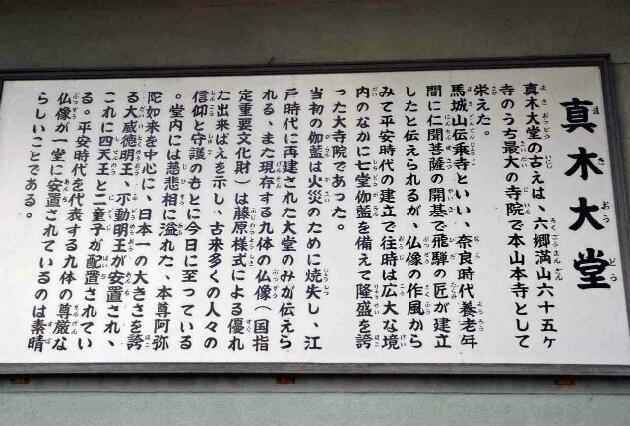 真木大堂
真木大堂の古えは、六郷満山六十五ヶ
寺のうち最大の寺院で本山本寺として
栄えた。
馬城山伝乗寺といい、奈良時代養老年
間に仁聞菩薩の開基で飛騨の匠が建立
したと伝えられるが、仏像の作風から
みて平安時代の建立で往時は広大な境
内のなかに七堂伽藍を備えて隆盛を誇
った大寺院であった。
当初の伽藍は火災のために焼失し、江
戸時代に再建された大堂のみが伝えら
れる、また現存する九体の仏像（国指
定重要文化財）は藤原様式による優れ
た出来ばえを示し、古来多くの人々の
信仰と守護のもとに今日に至っている
。堂内には慈悲相に溢れた、本尊阿弥
陀如来を中心に、日本一の大きさを誇
る大威徳明王、不動明王が安置され、
これに四天王と二童子が配置されてい
る。平安時代を代表する九体の尊厳な
仏像が一堂に安置されているのは素晴
らしいことである。